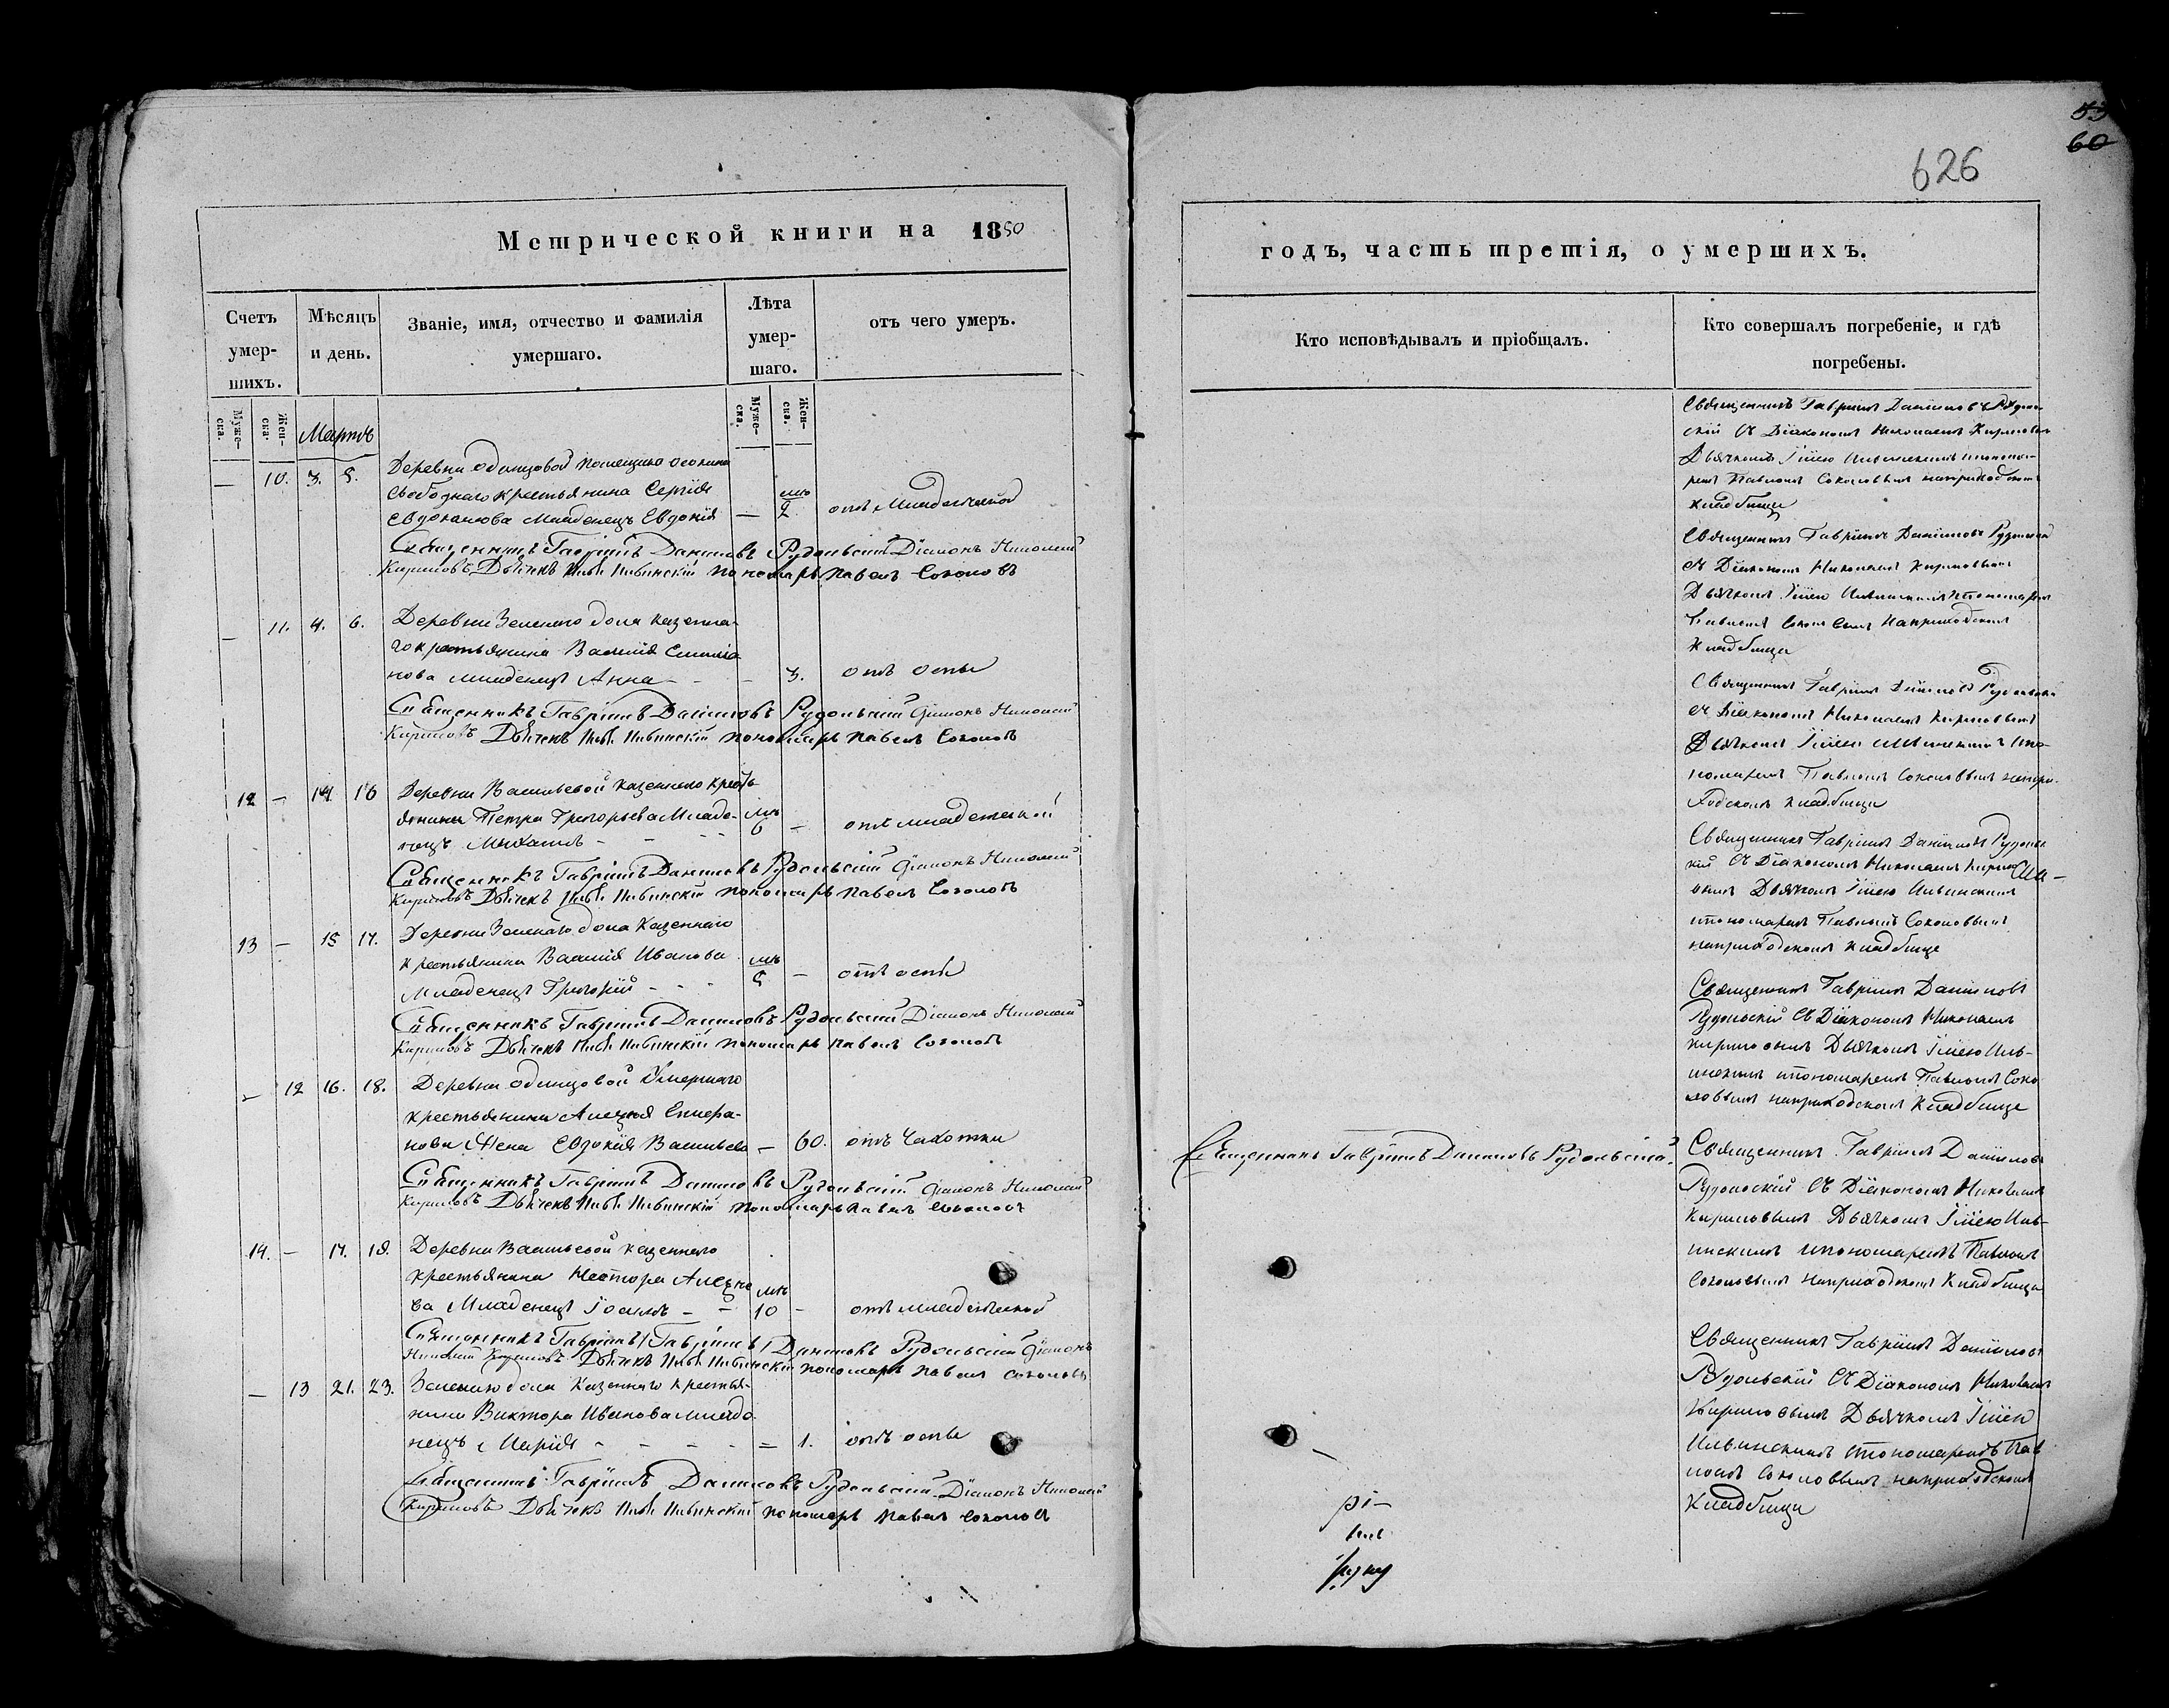 Метрической книги на 1850
Счетъ умер-шихъ.
Мѣсяцъ и день.
Званіе, имя, отчество и фамилія умершаго.
Лѣта умер-шаго.
отъ чего умеръ.
Муже-ска.
Жен-ска.
Мартъ
Муже-ска.
Жен-ска.
— 10. 3. 5. Деревни Одинцовой помещика
свободнаго крестьянина Сергія
младенецъ Евдокія — 2 отъ младенческой
Священникъ Гавріилъ Даниловъ Рудольскій Діаконъ Николай
Кириловъ Дьячекъ Илья Ильинскій пономарь Павелъ Соколовъ
— 11. 4. 6. Деревни Зеленаго дола казенна-
го крестьянина Василія
нова младенецъ Анна - - - 3. отъ оспы
Священникъ Гавріилъ Даниловъ Рудольскій Діаконъ Николай
Кириловъ Дьячекъ Илья Ильинскій пономарь Павелъ Соколовъ
12 — 14 16 Деревни Васильевой казеннаго кресть-
янина Петра Григорьева младе- 6 — отъ младенческой
нецъ Михаилъ - - - -
Священникъ Гавріилъ Даниловъ Рудольскій Діаконъ Николай
Кириловъ Дьячекъ Илья Ильинскій пономарь Павелъ Соколовъ
13 — 15 17. Деревни Зеленаго дола казеннаго
крестьянина Василія Иванова
младенецъ Григорій - - - — отъ оспы
Священникъ Гавріилъ Даниловъ Рудольскій Діаконъ Николай
Кириловъ Дьячекъ Илья Ильинскій пономарь Павелъ Соколовъ
— 12 16. 18. Деревни Одинцовой умершаго
крестьянина Алексѣя
нова жена Евдокія Васильева — 60. отъ чахотки
Священникъ Гавріилъ Даниловъ Рудольскій Діаконъ Николай
Кириловъ Дьячекъ Илья Ильинскій пономарь Павелъ Соколовъ
14. — 17. 19. Деревни Васильевой казеннаго
крестьянина Нестора Алексѣе-
ва младенецъ Іоаннъ - - 10 - отъ младенческой
Священникъ Гавріилъ /Гавріилъ/ Даниловъ Рудольскій Діаконъ
Николай Кириловъ Дьячекъ Илья Ильинскій пономарь Павелъ Соколовъ
— 13 21. 23. Зеленаго дола казеннаго крестья-
нина Виктора Иванова младе-
нецъ Марія - - - - = 1. отъ оспы
Священникъ Гавріилъ Даниловъ Рудольскій Діаконъ Николай
Кириловъ Дьячекъ Илья Ильинскій пономарь Павелъ Соколовъ
60
626
годъ, часть третія, о умершихъ.
Кто исповѣдывалъ и пріобщалъ.
Кто совершалъ погребеніе, и гдѣ погребены.
Священникъ Гавріилъ Даниловъ Рудоль-
скій съ Діакономъ Николаемъ Кириловымъ
Дьячкомъ Ильею Ильинскимъ и понома-
ремъ Павломъ Соколовымъ на приходскомъ
кладбище
Священникъ Гавріилъ Даниловъ Рудольскій
съ Діакономъ Николаемъ Кириловымъ
Дьячкомъ Ильею Ильинскимъ и пономаремъ
Павломъ Соколовымъ на приходскомъ
кладбище
Священникъ Гавріилъ Даниловъ Рудольскій
съ Діакономъ Николаемъ Кириловымъ
Дьячкомъ Ильею Ильинскимъ и по-
номаремъ Павломъ Соколовымъ на при-
ходскомъ кладбище
Священникъ Гавріилъ Даниловъ Рудольс-
кій съ Діакономъ Николаемъ Кирило-
вымъ Дьячкомъ Ильею Ильинскимъ
и пономаремъ Павломъ Соколовымъ
на приходскомъ кладбище
Священникъ Гавріилъ Даниловъ
Рудольскій съ Діакономъ Николаемъ
Кириловымъ Дьячкомъ Ильею Иль-
инскимъ и пономаремъ Павломъ Соко-
ловымъ на приходскомъ кладбище
Священникъ Гавріилъ Даниловъ Рудольскій.
Священникъ Гавріилъ Даниловъ
Рудольскій съ Діакономъ Николаемъ
Кириловымъ Дьячкомъ Ильею Иль-
инскимъ и пономаремъ Павломъ
Соколовымъ на приходскомъ кладбище
Священникъ Гавріилъ Даниловъ
Рудольскій съ Діакономъ Николаемъ
Кириловымъ Дьячкомъ Ильею
Ильинскимъ и пономаремъ Пав-
ломъ Соколовымъ на приходскомъ
кладбище